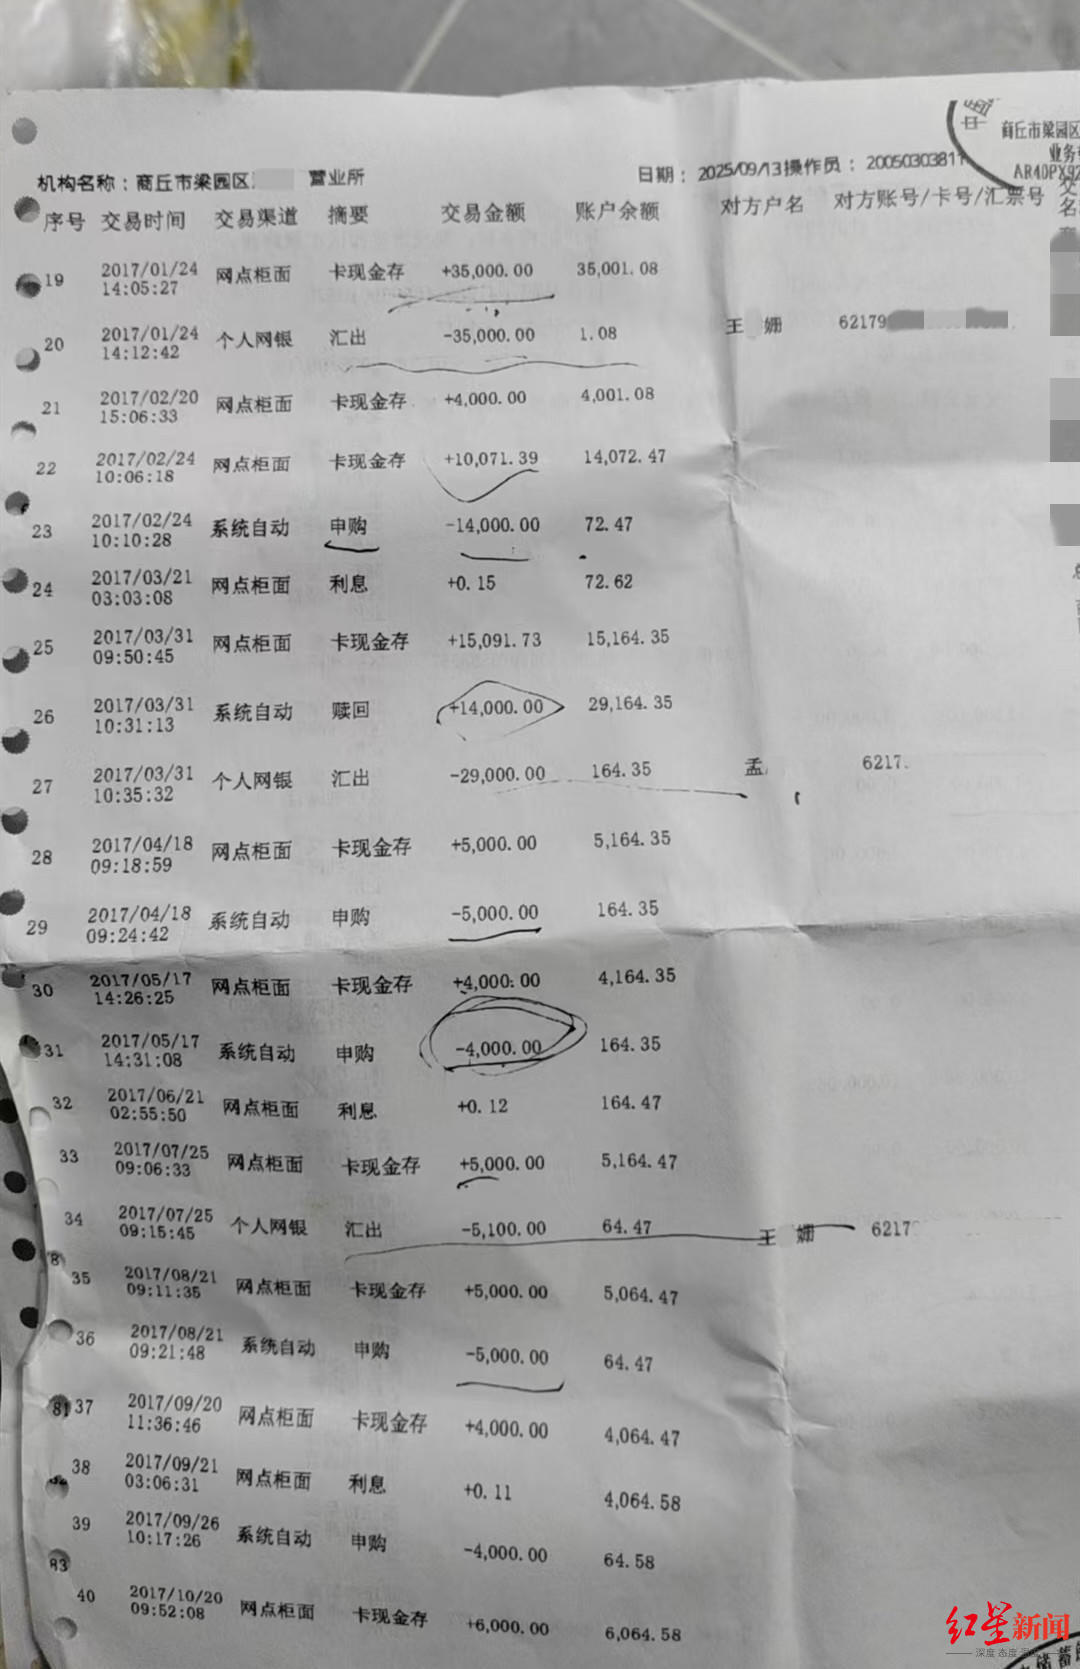 商丘市梁园区
业务专
AR40PX92
机构名称：商丘市梁园区 营业所 日期：2025/09/13操作员：20050303811
序号 交易时间 交易渠道 摘要 交易金额 账户余额 对方户名 对方账号/卡号/汇票号
19 2017/01/24 14:05:27 网点柜面 卡现金存 +35,000.00 35,001.08
20 2017/01/24 14:12:42 个人网银 汇出 -35,000.00 1.08 王 姗 62179
21 2017/02/20 15:06:33 网点柜面 卡现金存 +4,000.00 4,001.08
22 2017/02/24 10:06:18 网点柜面 卡现金存 +10,071.39 14,072.47
23 2017/02/24 10:10:28 系统自动 申购 -14,000.00 72.47
24 2017/03/21 03:03:08 网点柜面 利息 +0.15 72.62
25 2017/03/31 09:50:45 网点柜面 卡现金存 +15,091.73 15,164.35
26 2017/03/31 10:31:13 系统自动 赎回 +14,000.00 29,164.35
27 2017/03/31 10:35:32 个人网银 汇出 -29,000.00 164.35 孟 6217
28 2017/04/18 09:18:59 网点柜面 卡现金存 +5,000.00 5,164.35
29 2017/04/18 09:24:42 系统自动 申购 -5,000.00 164.35
30 2017/05/17 14:26:25 网点柜面 卡现金存 +4,000.00 4,164.35
31 2017/05/17 14:31:08 系统自动 申购 -4,000.00 164.35
32 2017/06/21 02:55:50 网点柜面 利息 +0.12 164.47
33 2017/07/25 09:06:33 网点柜面 卡现金存 +5,000.00 5,164.47
34 2017/07/25 09:15:45 个人网银 汇出 -5,100.00 64.47 王 姗 6217
35 2017/08/21 09:11:35 网点柜面 卡现金存 +5,000.00 5,064.47
36 2017/08/21 09:21:48 系统自动 申购 -5,000.00 64.47
37 2017/09/20 11:36:46 网点柜面 卡现金存 +4,000.00 4,064.47
38 2017/09/21 03:06:31 网点柜面 利息 +0.11 4,064.58
39 2017/09/26 10:17:26 系统自动 申购 -4,000.00 64.58
40 2017/10/20 09:52:08 网点柜面 卡现金存 +6,000.00 6,064.58
81
83
红星新闻
深度 态度
储蓄